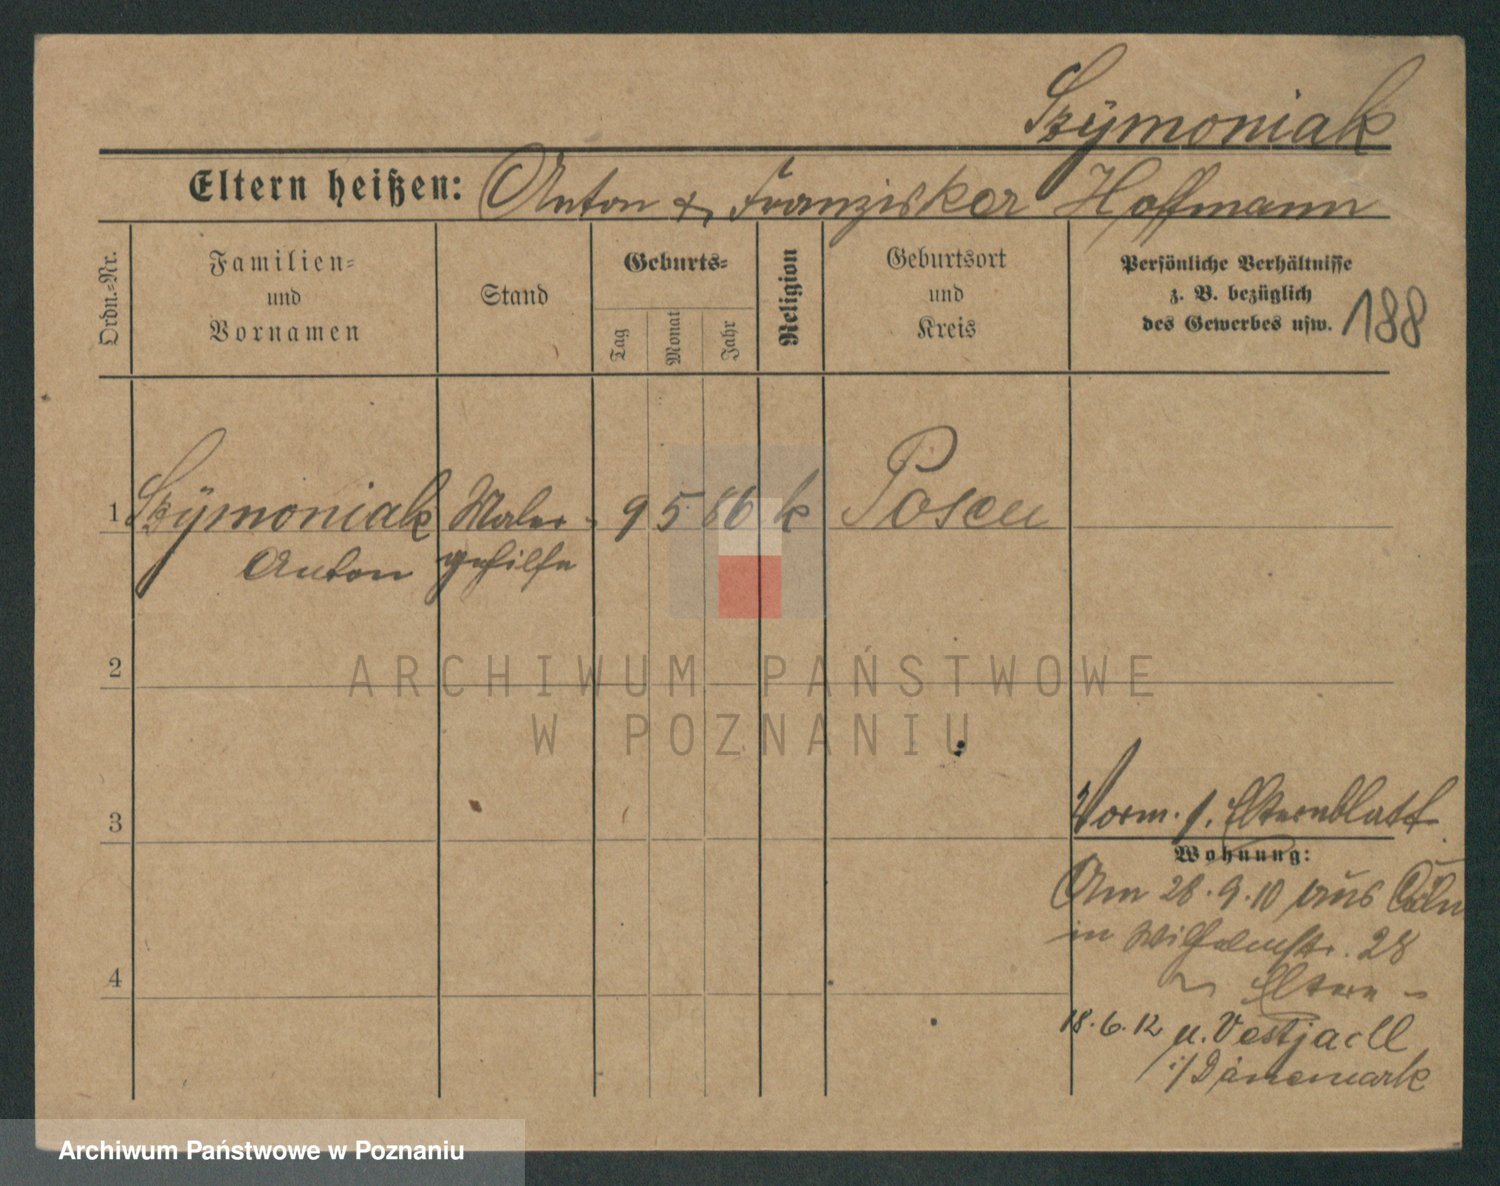 Szÿmoniak
Eltern heißen: Anton & Franziska Hoffmann
Ordn.-Nr.
Familien-
und
Vornamen
Stand
Geburts-
Tag
Monat
Jahr
Religion
Geburtsort
und
Kreis
Persönliche Verhältnisse
z. B. bezüglich
des Gewerbes usw.
188
1 Szÿmoniak Maler- 9 5 86 k Posen
Anton gehilfe
2
3
Vorm. s. Elternblatt
Wohnung:
Am 28.9.10 aus Cöln
in Wilhelmstr. 28
Eltern -
4
18.6.12 n. Vestjaell
i/Dänemark
ARCHIWUM PAŃSTWOWE
W POZNANIU
Archiwum Państwowe w Poznaniu